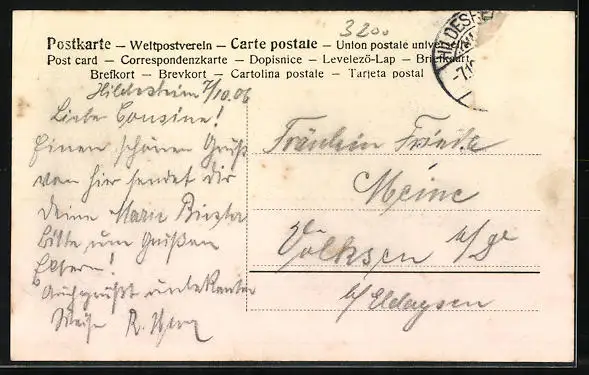 3200
Postkarte – Weltpostverein – Carte postale – Union postale universelle
Post card – Correspondenzkarte – Dopisnice – Levelező-Lap – Briefkaart
Brefkort – Brevkort – Cartolina postale – Tarjeta postal
HILDESHEIM
Hildesheim 7/10.06
Liebe Cousine!
Einen schönen Gruß
von hier sendet dir
deine Marie
Bitte um Grüßen
Eltern!
Auch grüßt unbekannter
Weise R.
Fräulein Frieda
Meine
Völksen a/D
b/Eldagsen